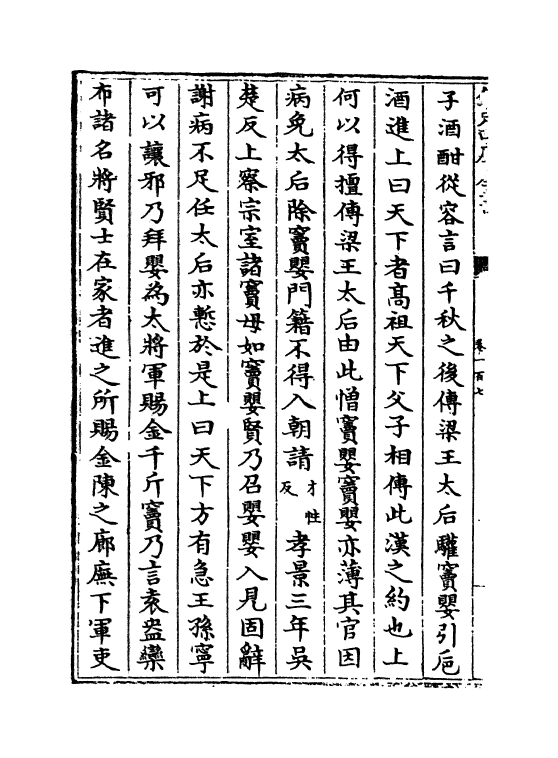 子酒酣從容言曰千秋之後傳梁王太后驩竇嬰引巵
酒進上曰天下者髙祖天下父子相傳此漢之約也上
何以得擅傳梁王太后由此憎竇嬰竇嬰亦薄其官因
病免太后除竇嬰門籍不得入朝請才性反孝景三年吳
楚反上察宗室諸竇毋如竇嬰賢乃召嬰嬰入見固辭
謝病不足任太后亦慙於是上曰天下方有急王孫寧
可以讓邪乃拜嬰為大將軍賜金千斤竇乃言袁盎欒
布諸名將賢士在家者進之所賜金陳之廊廡下軍吏
卷一百七